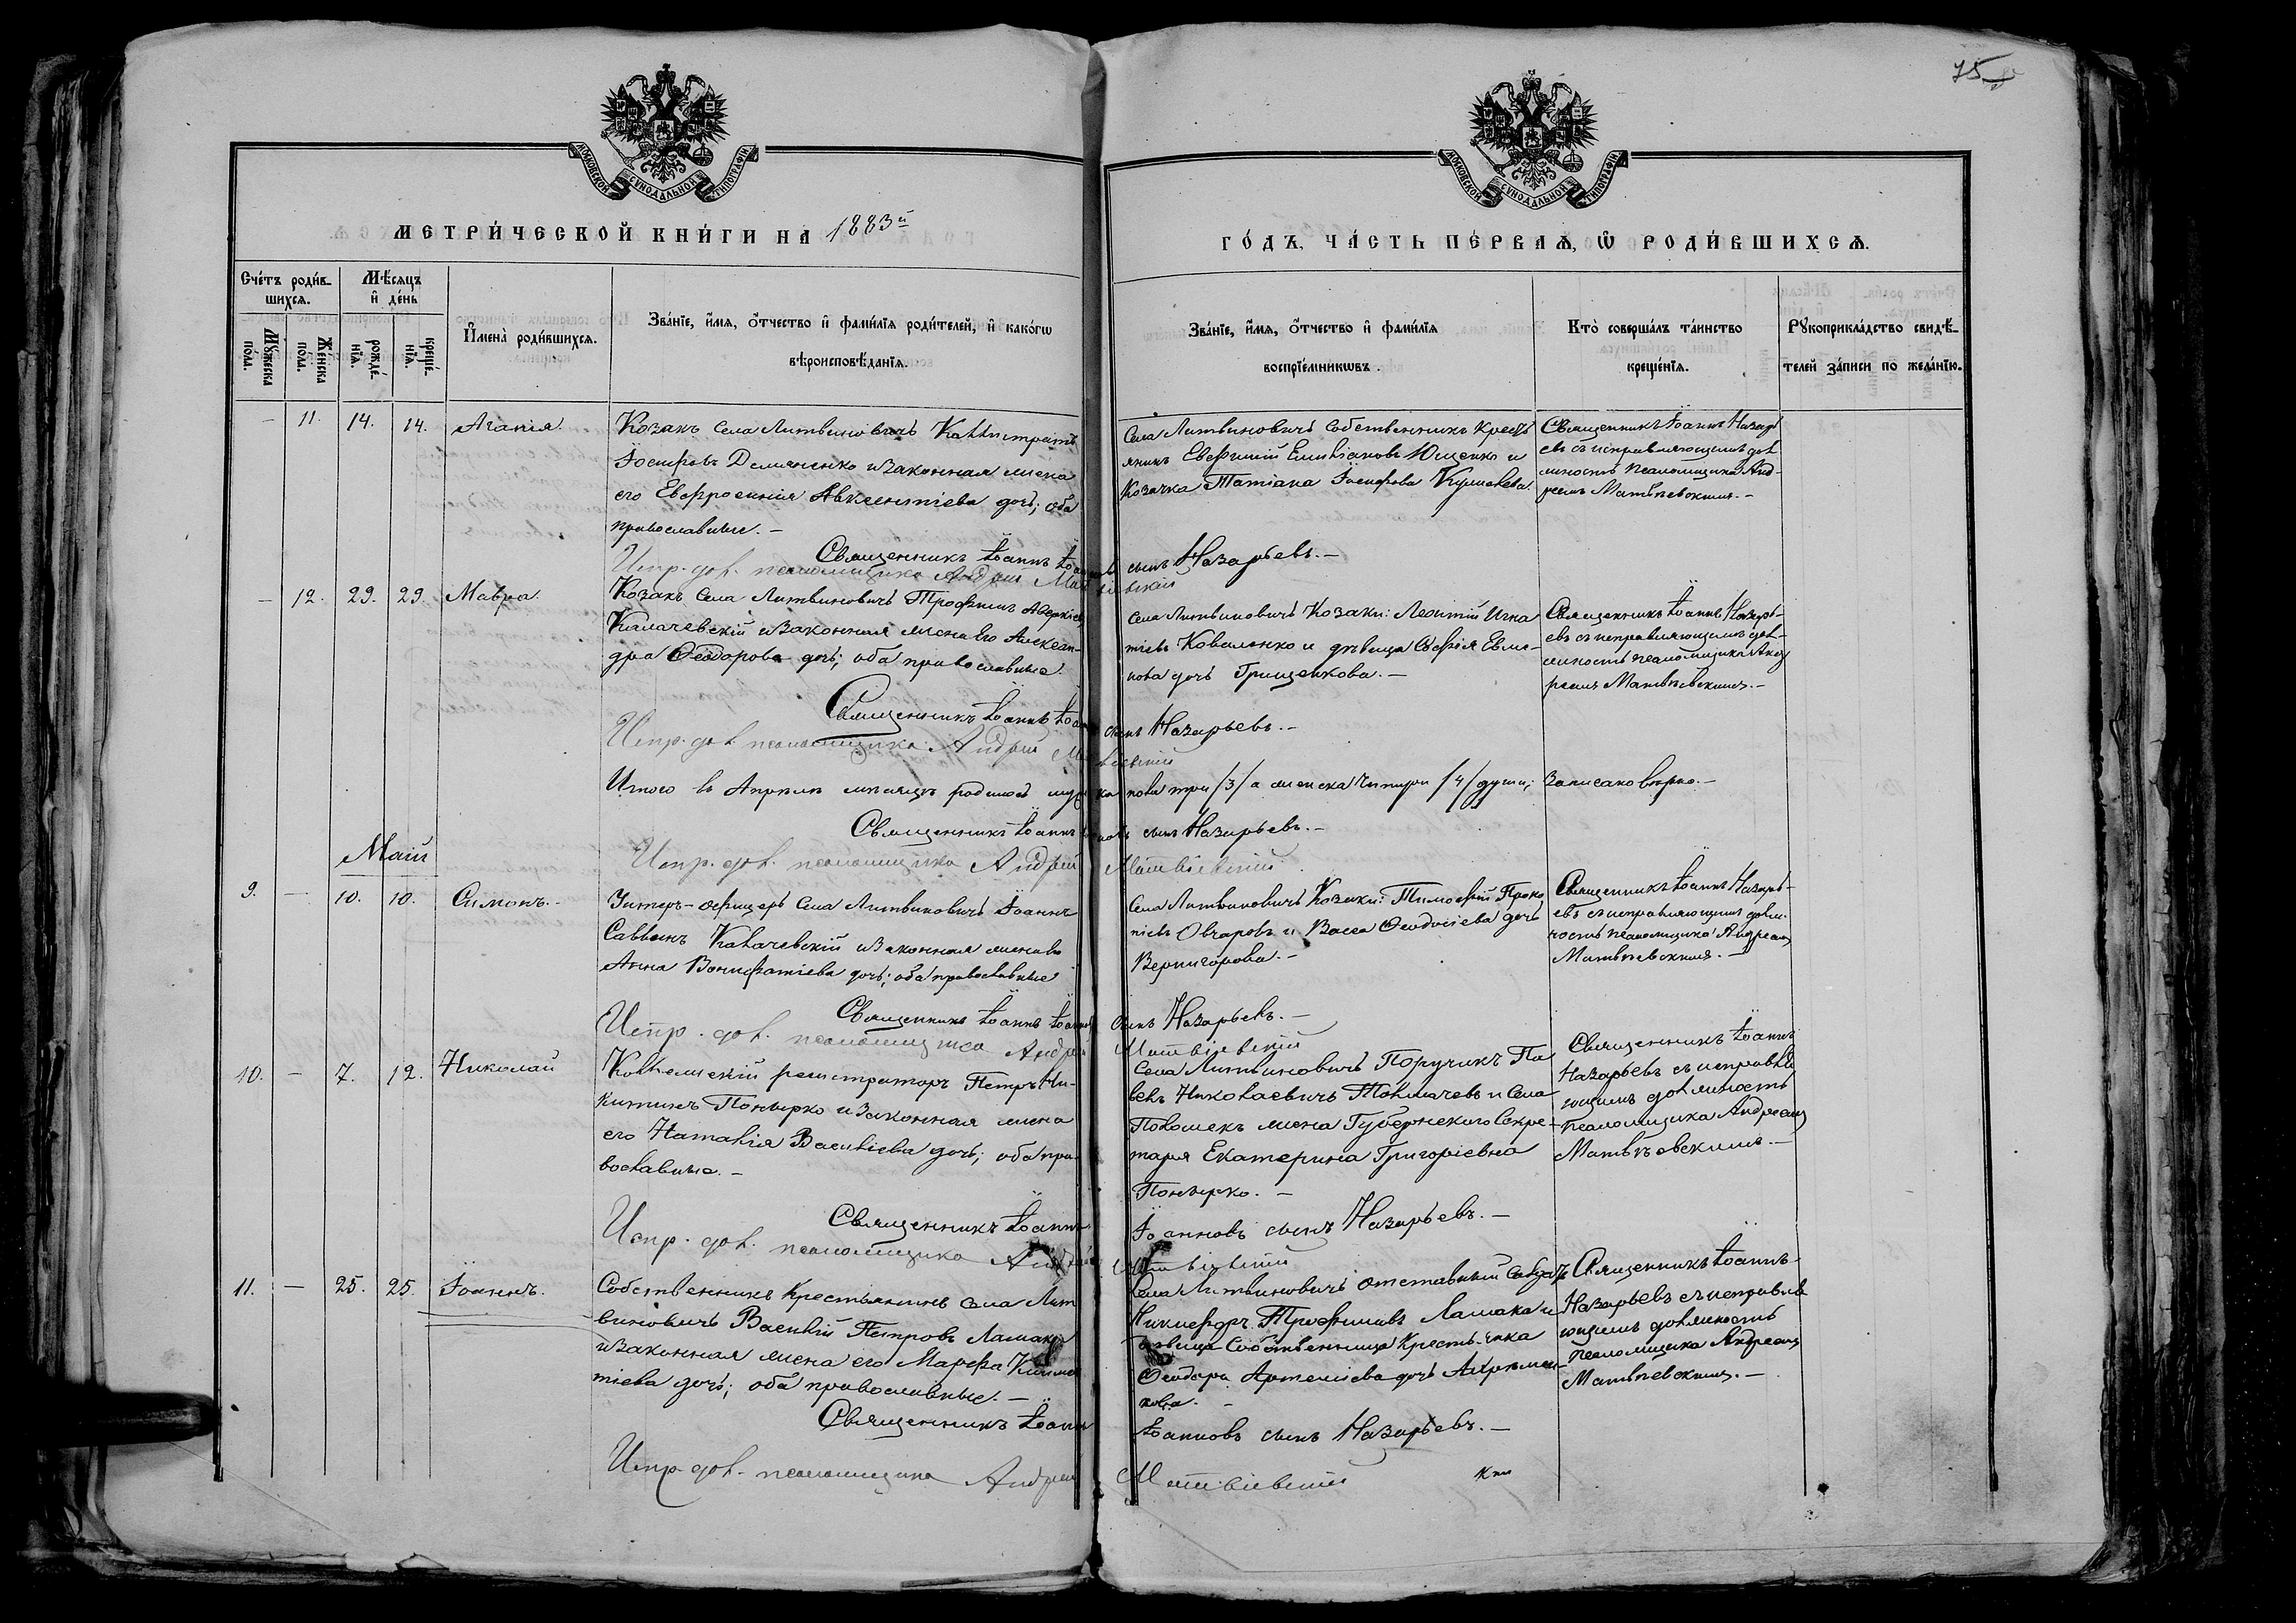 75
МОСКОВСКОЙ СУНОДАЛЬНОЙ ТИПОГРАФІИ
МОСКОВСКОЙ СУНОДАЛЬНОЙ ТИПОГРАФІИ
МЕТРИ́ЧЕСКОЙ КНИ́ГИ НА 1883й
ГО́ДЪ, ЧА́СТЬ ПЕ́РВАѦ, Ѡ РОДИ́ВШИХСѦ.
Сче́тъ роди́в-
шихсѧ.
Мѣ́сѧцъ
и҆ де́нь
Мꙋ́жеска по́ла.
Же́нска по́ла.
рожде́-
нїѧ.
креще́-
нїѧ.
И҆мена̀ роди́вшихсѧ.
Зва́нїе, и҆́мѧ, о҆́тчество и҆ фами́лїѧ роди́телей, и҆ како́гѡ
вѣроисповѣ́данїѧ.
Зва́нїе, и҆́мѧ, о҆́тчество и҆ фами́лїѧ
воспрїе́мникѡвъ.
Кто̀ соверша́лъ та́инство
креще́нїѧ.
Рꙋкоприкла́дство свидѣ́-
телей за́писи по жела́нїю.
— 11. 14. 14. Агапія.
Козакъ села Литвиновичъ Каллистратъ
Іосифовъ Демяненко и законная жена
его Евфросинія Авксентіева дочь; оба
православные. —
Села Литвиновичъ Собственникъ Кресть
янинъ Евфимій Емиліановъ Ющенко и
Козачка Татіана Іосифова
Священникъ Іоаннъ Назарь
евъ съ исправляющимъ дол
жность псаломщика Анд-
реемъ Матвѣевскимъ. —
Священникъ Іоаннъ Іоанновъ сынъ Назарьевъ. —
Испр. дол. псаломщика Андрей Матвіевскій
— 12. 29. 29. Мавра.
Козакъ села Литвиновичъ Трофимъ Аверкіев
Калачевскій и законная жена его Алексан-
дра Ѳеодорова дочь; оба православные.
Села Литвиновичъ Козаки: Леонтій Игна
тіевъ Коваленко и дѣвица Софія
нова дочь Грищенкова. —
Священникъ Іоаннъ Назарь-
евъ съ исправляющимъ дол-
жность псаломщика Анд
реемъ Матвѣевскимъ. —
Священникъ Іоаннъ Іоанновъ сынъ Назарьевъ. —
Испр. дол. псаломщика Андрей Матвіевскій
Итого въ Апрѣлѣ мѣсяцѣ родилось мужеска пола три /3/ а женска четыри /4/ души; Записано вѣрно. —
Священникъ Іоаннъ Іоанновъ сынъ Назарьевъ. —
Испр. дол. псаломщика Андрей Матвіевскій
Май
9. — 10. 10. Симонъ. —
Унтеръ-офицеръ села Литвиновичъ Іоаннъ
Саввинъ Калачевскій и законная жена его
Анна Вонифатіева дочь; оба православные
Села Литвиновичъ Козаки: Тимофей Проко
піевъ Овчаровъ и Васса Ѳеодосіева дочь
Вернигорова. —
Священникъ Іоаннъ Назарь-
евъ съ исправляющимъ долж-
ность псаломщика Андреемъ
Матвѣевскимъ. —
Священникъ Іоаннъ Іоанновъ сынъ Назарьевъ. —
Испр. дол. псаломщика Андрей Матвіевскій
10. — 7. 12. Николай
Коллежскій регистраторъ Петръ Ни-
китинъ Понырко и законная жена
его Наталія Васильева дочь; оба пра-
вославные. —
Села Литвиновичъ Поручикъ Па
велъ Николаевичъ Толмачевъ и села
жена Губернскаго Секре-
таря Екатерина Григоріевна
Понырко. —
Священникъ Іоаннъ
Назарьевъ съ исправля
ющимъ должность
псаломщика Андреемъ
Матвѣевскимъ. —
Священникъ Іоаннъ Іоанновъ сынъ Назарьевъ. —
Испр. дол. псаломщика Андрей Матвіевскій
11. — 25. 25. Іоаннъ.
Собственникъ Крестьянинъ села Лит
виновичъ Василій Петровъ Ламака
и законная жена его Марфа
тіева дочь; оба православные. —
Села Литвиновичъ отставный солдатъ
Никифоръ Трофимовъ Ламака и
дѣвица Собственница Крестьянка
Ѳеодора Артеміева дочь
кова. —
Священникъ Іоаннъ
Назарьевъ съ исправля
ющимъ должность
псаломщика Андреемъ
Матвѣевскимъ. —
Священникъ Іоаннъ Іоанновъ сынъ Назарьевъ. —
Испр. дол. псаломщика Андрей Матвіевскій